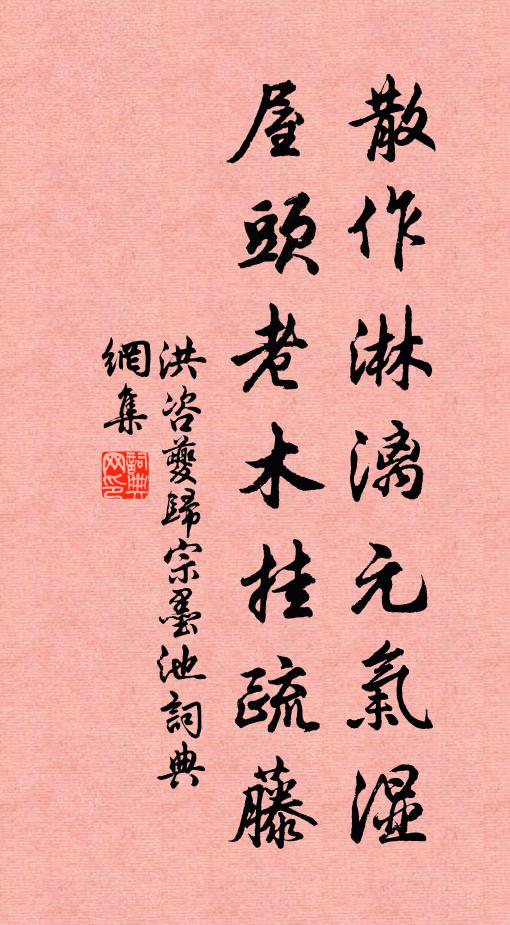 散作淋漓元氣湿
屋頭老木挂疏藤
洪咨夔歸宗墨池詞典
網集
詞典網印